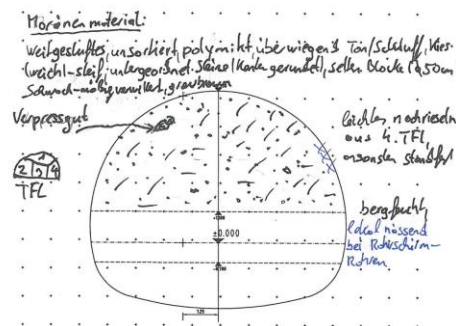 Moränenmaterial:
weitgestuftes, unsortiert, polymikt, überwiegend Ton/Schluff, Kies
(weich-steif, untergeordnet Steine (Kanten gerundet), selten Blöcke
Schwach-mäßig verwittert, graubraun
Verpressgut
leichtes nachrieseln
aus 4. TFL
ansonsten standfest
1
2 3 4
TFL
bergfeucht
lokal nässend
bei Rohrschirm-
Rohren
±0.000
125